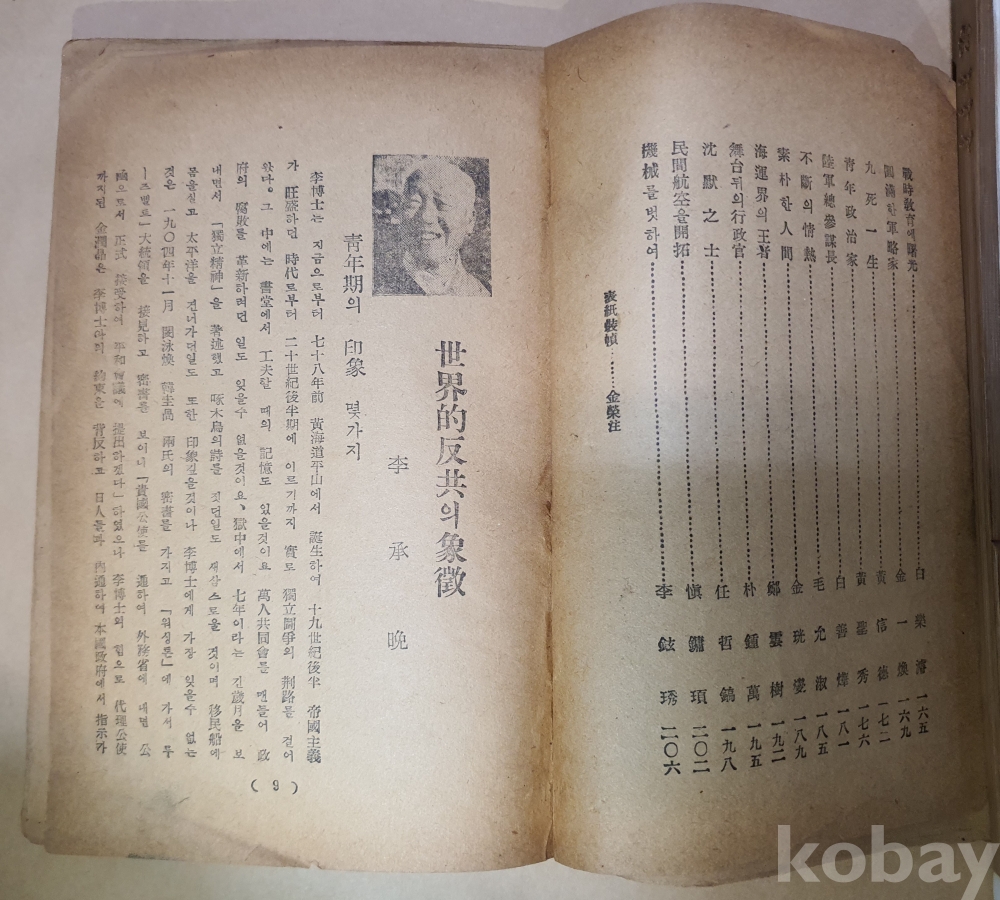 戰時教育에曙光 白樂濬 一六五
圓滿한軍略家 金一煥 一六九
九死一生 黃信德 一七二
靑年政治家 黃聖秀 一七六
陸軍總參謀長 白善燁 一八一
不斷의情熱 毛允淑 一八五
素朴한人間 金珖燮 一八九
海運界의王者 鄭雲樹 一九二
舞台뒤의行政官 朴鍾萬 一九五
沈默之士 任哲鎬 一九八
民間航空을開拓 愼鏞頊 二〇二
機械를벗하여 李鉉琇 二〇六
表紙裝幀……金榮注
世界的反共의象徵
李承晩
靑年期의 印象 몇가지
李博士는 지금으로부터 七十八年前 黃海道平山에서 誕生하여 十九世紀後半 帝國主義
가 旺盛하던 時代로부터 二十世紀後半期에 이르기까지 實로 獨立鬪爭의 荆路를 걸어
왔다。그 中에는 書堂에서 工夫할 때의 記憶도 있을것이요 萬人共同會를 맨들어 政
府의 腐敗를 革新하려던 일도 잊을수 없을것이요、獄中에서 七年이라는 긴歲月을 보
내면서 「獨立精神」을 著述했고 啄木鳥의詩를 짓던일도 새삼스로울 것이며 移民船에
몸을싣고 太平洋을 건너가던일도 또한 印象깊을것이나 李博士에게 가장 잊을수 없는
것은 一九〇四年十一月 閔泳煥 韓圭卨 兩氏의 密書를 가지고 「워싱톤」에 가서 루
ー즈벨트」大統領을 接見하고 密書를 보이니「貴國公使를 通하여 外務省에 내면 公
使으로서 正式 接受하여 平和會議에 提出하겠다」하였으나 李博士의 힘으로 代理公使
까지된 金潤晶은 李博士와의 約束을 背反하고 日人들과 內通하여 本國政府에서 指示가
(9)
kobay